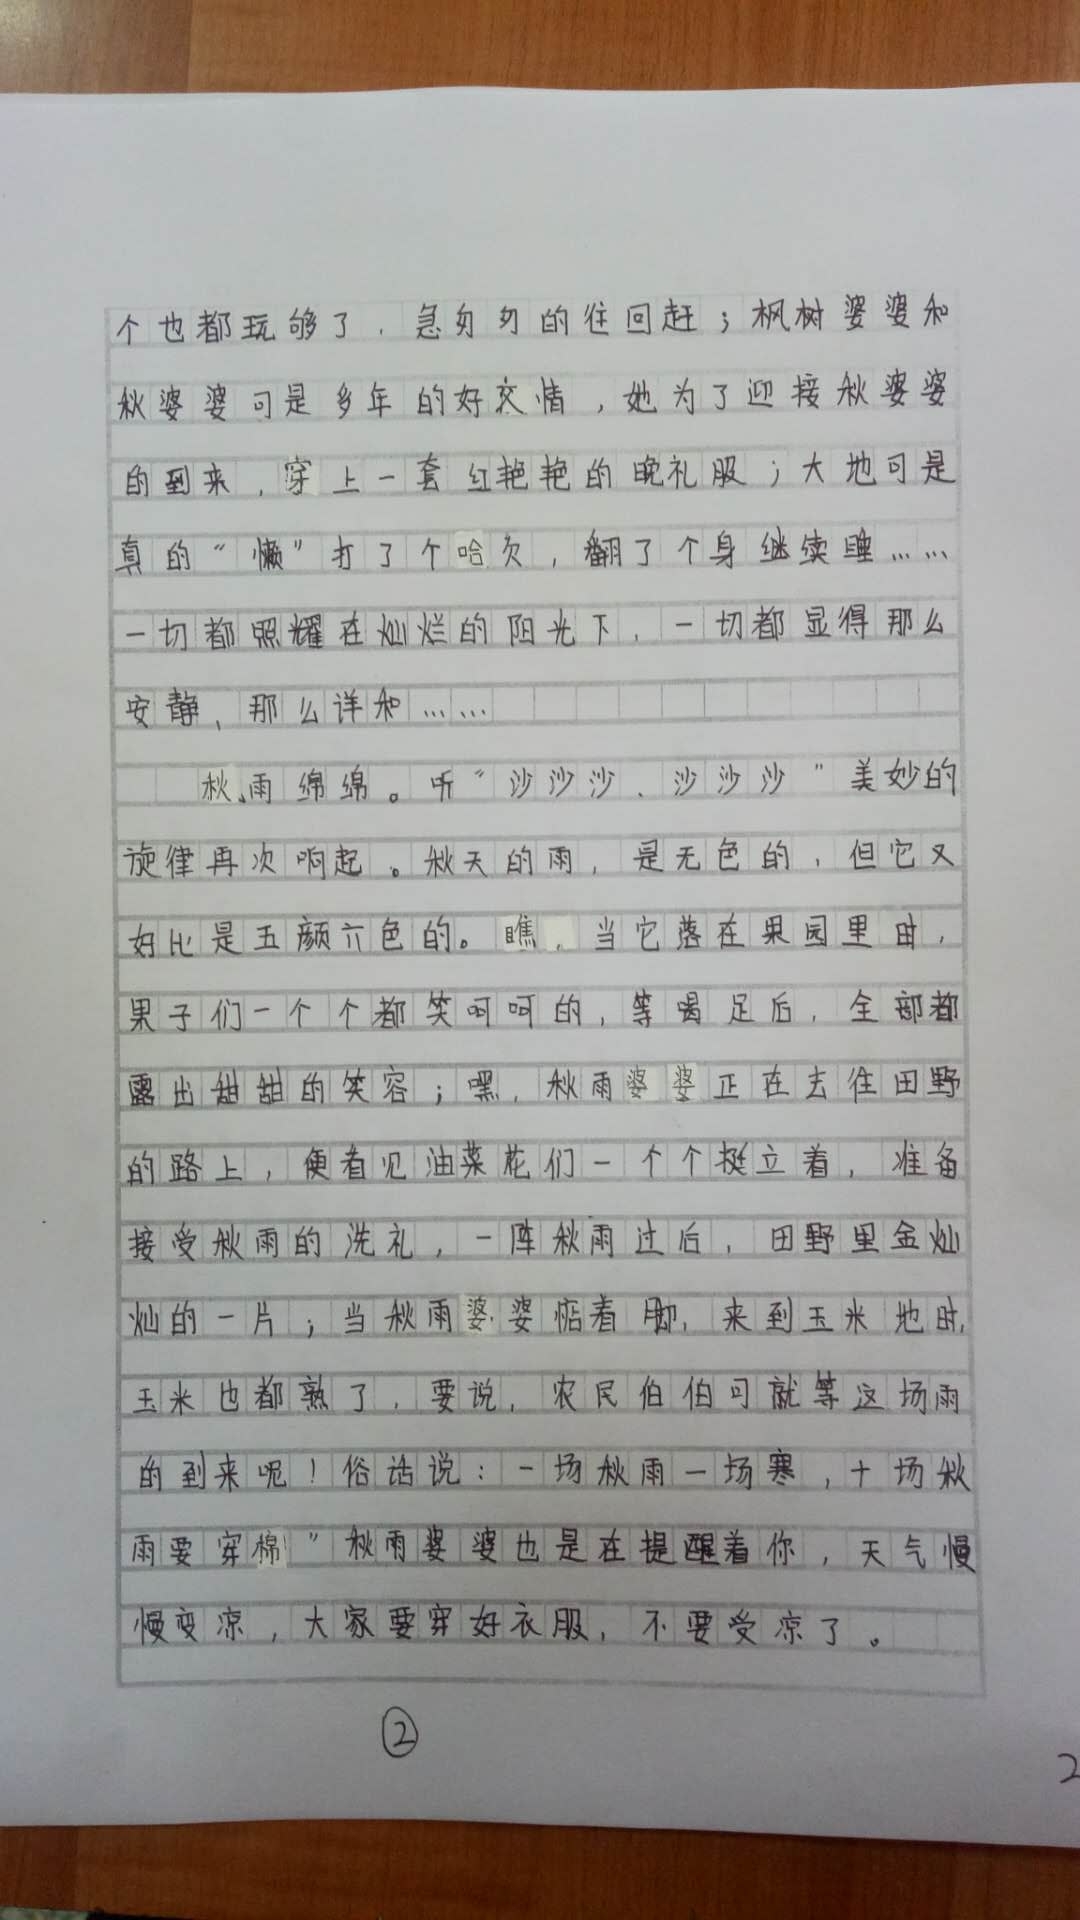 个也都玩够了，急匆匆的往回赶；枫树婆婆和
秋婆婆可是多年的好交情，她为了迎接秋婆婆
的到来，穿上一套红艳艳的晚礼服；大地可是
真的“懒”打了个哈欠，翻了个身继续睡……
一切都照耀在灿烂的阳光下，一切都显得那么
安静，那么详和……
秋雨绵绵。听“沙沙沙、沙沙沙”美妙的
旋律再次响起。秋天的雨，是无色的，但它又
好比是五颜六色的。瞧，当它落在果园里时，
果子们一个个都笑呵呵的，等喝足后，全部都
露出甜甜的笑容；嘿，秋雨婆婆正在去往田野
的路上，便看见油菜花们一个个挺立着，准备
接受秋雨的洗礼，一阵秋雨过后，田野里金灿
灿的一片；当秋雨婆婆惦着脚，来到玉米地时，
玉米也都熟了，要说，农民伯伯可就等这场雨
的到来呢！俗话说：一场秋雨一场寒，十场秋
雨要穿棉”秋雨婆婆也是在提醒着你，天气慢
慢变凉，大家要穿好衣服，不要受凉了。
②
2